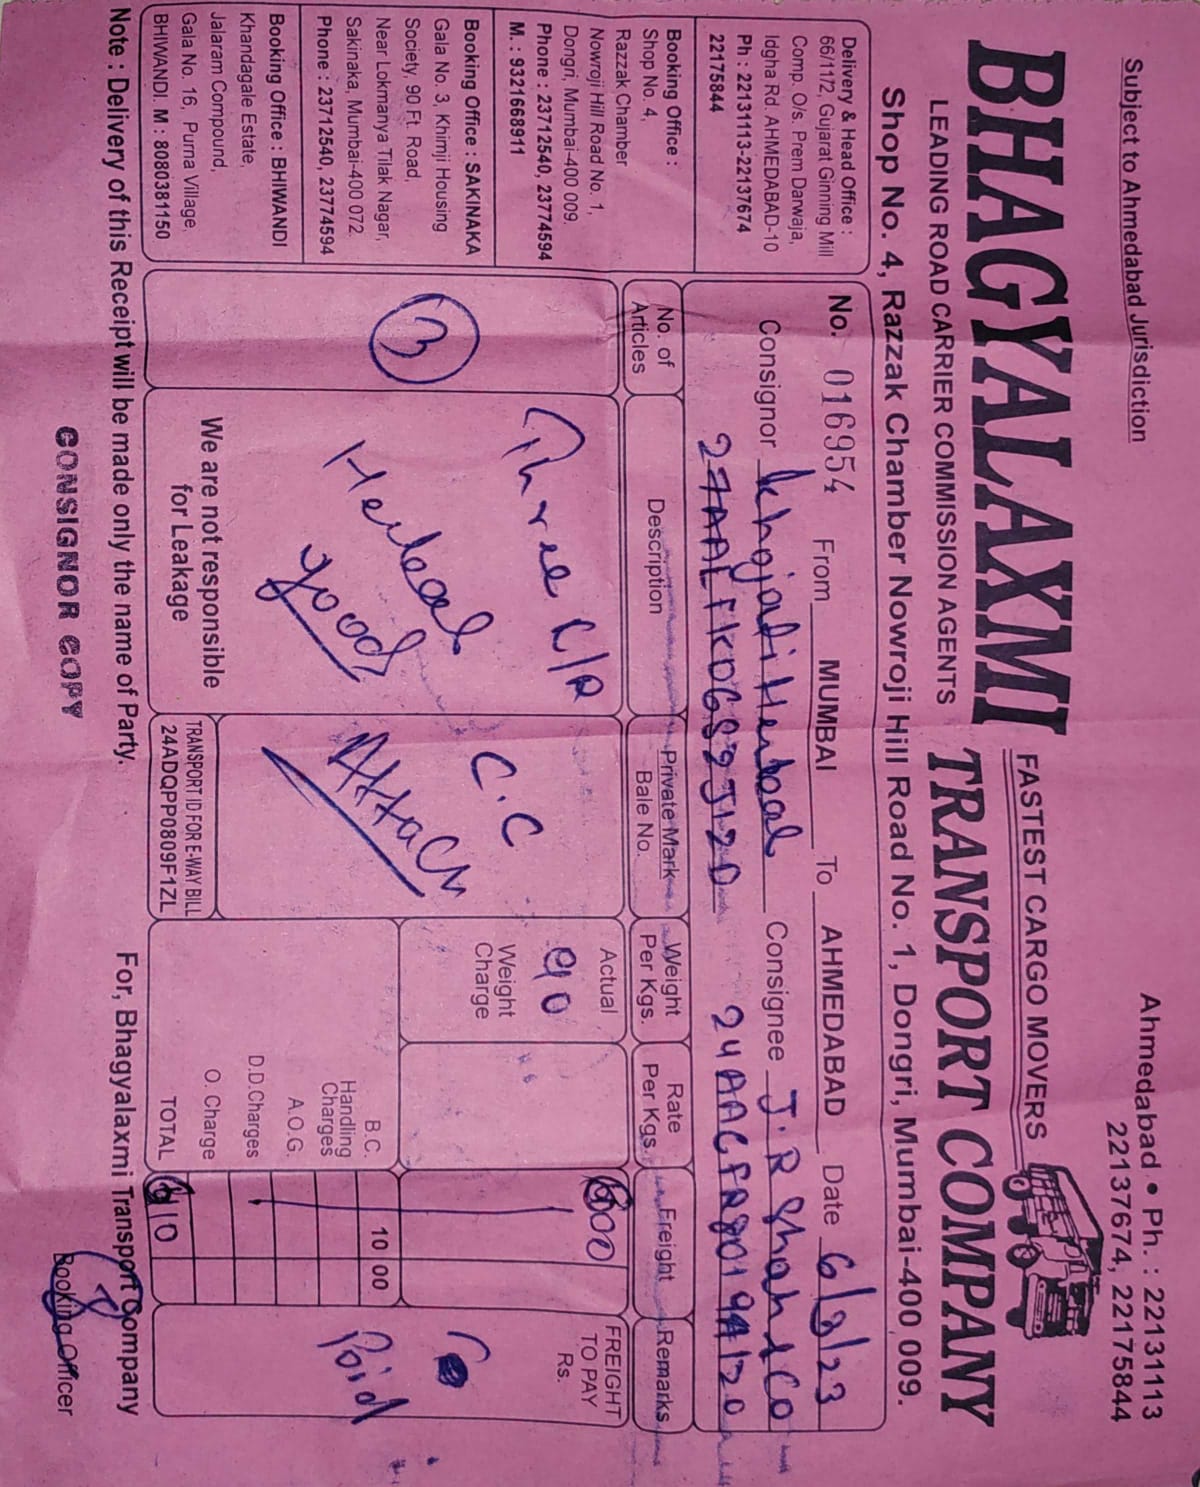 Subject to Ahmedabad Jurisdiction
Ahmedabad • Ph. : 22131113
22137674, 22175844
FASTEST CARGO MOVERS
BHAGYALAXMI TRANSPORT COMPANY
LEADING ROAD CARRIER COMMISSION AGENTS
Shop No. 4, Razzak Chamber Nowroji Hill Road No. 1, Dongri, Mumbai-400 009.
Delivery & Head Office :
66/11/2, Gujarat Ginning Mill
Comp. O/s. Prem Darwaja,
Idgha Rd. AHMEDABAD-10
Ph : 22131113-22137674
22175844
Booking Office :
Shop No. 4,
Razzak Chamber
Nowroji Hill Road No. 1,
Dongri, Mumbai-400 009.
Phone : 23712540, 23774594
M. : 9321668911
Booking Office : SAKINAKA
Gala No. 3, Khimji Housing
Society, 90 Ft. Road,
Near Lokmanya Tilak Nagar,
Sakinaka, Mumbai-400 072.
Phone : 23712540, 23774594
Booking Office : BHIWANDI
Khandagale Estate,
Jalaram Compound,
Gala No. 16, Purna Village,
BHIWANDI. M : 8080381150
No. 016954 From MUMBAI To AHMEDABAD Date 6/8/23
Consignor Herbal Consignee J.R Shah & Co
No. of Articles Description Private Mark Bale No. Weight Per Kgs. Rate Per Kgs. Freight Remarks
3
Three C/R
Herbal
good
C.C
Attach
Actual
90
Weight
Charge
600
FREIGHT
TO PAY
Rs.
Paid
B.C. 10 00
Handling
Charges
A.O.G.
D.D.Charges
O. Charge
TOTAL 610
We are not responsible
for Leakage
TRANSPORT ID FOR E-WAY BILL
24ADQPP0809F1ZL
Note : Delivery of this Receipt will be made only the name of Party.
For, Bhagyalaxmi Transport Company
CONSIGNOR COPY
Booking Officer